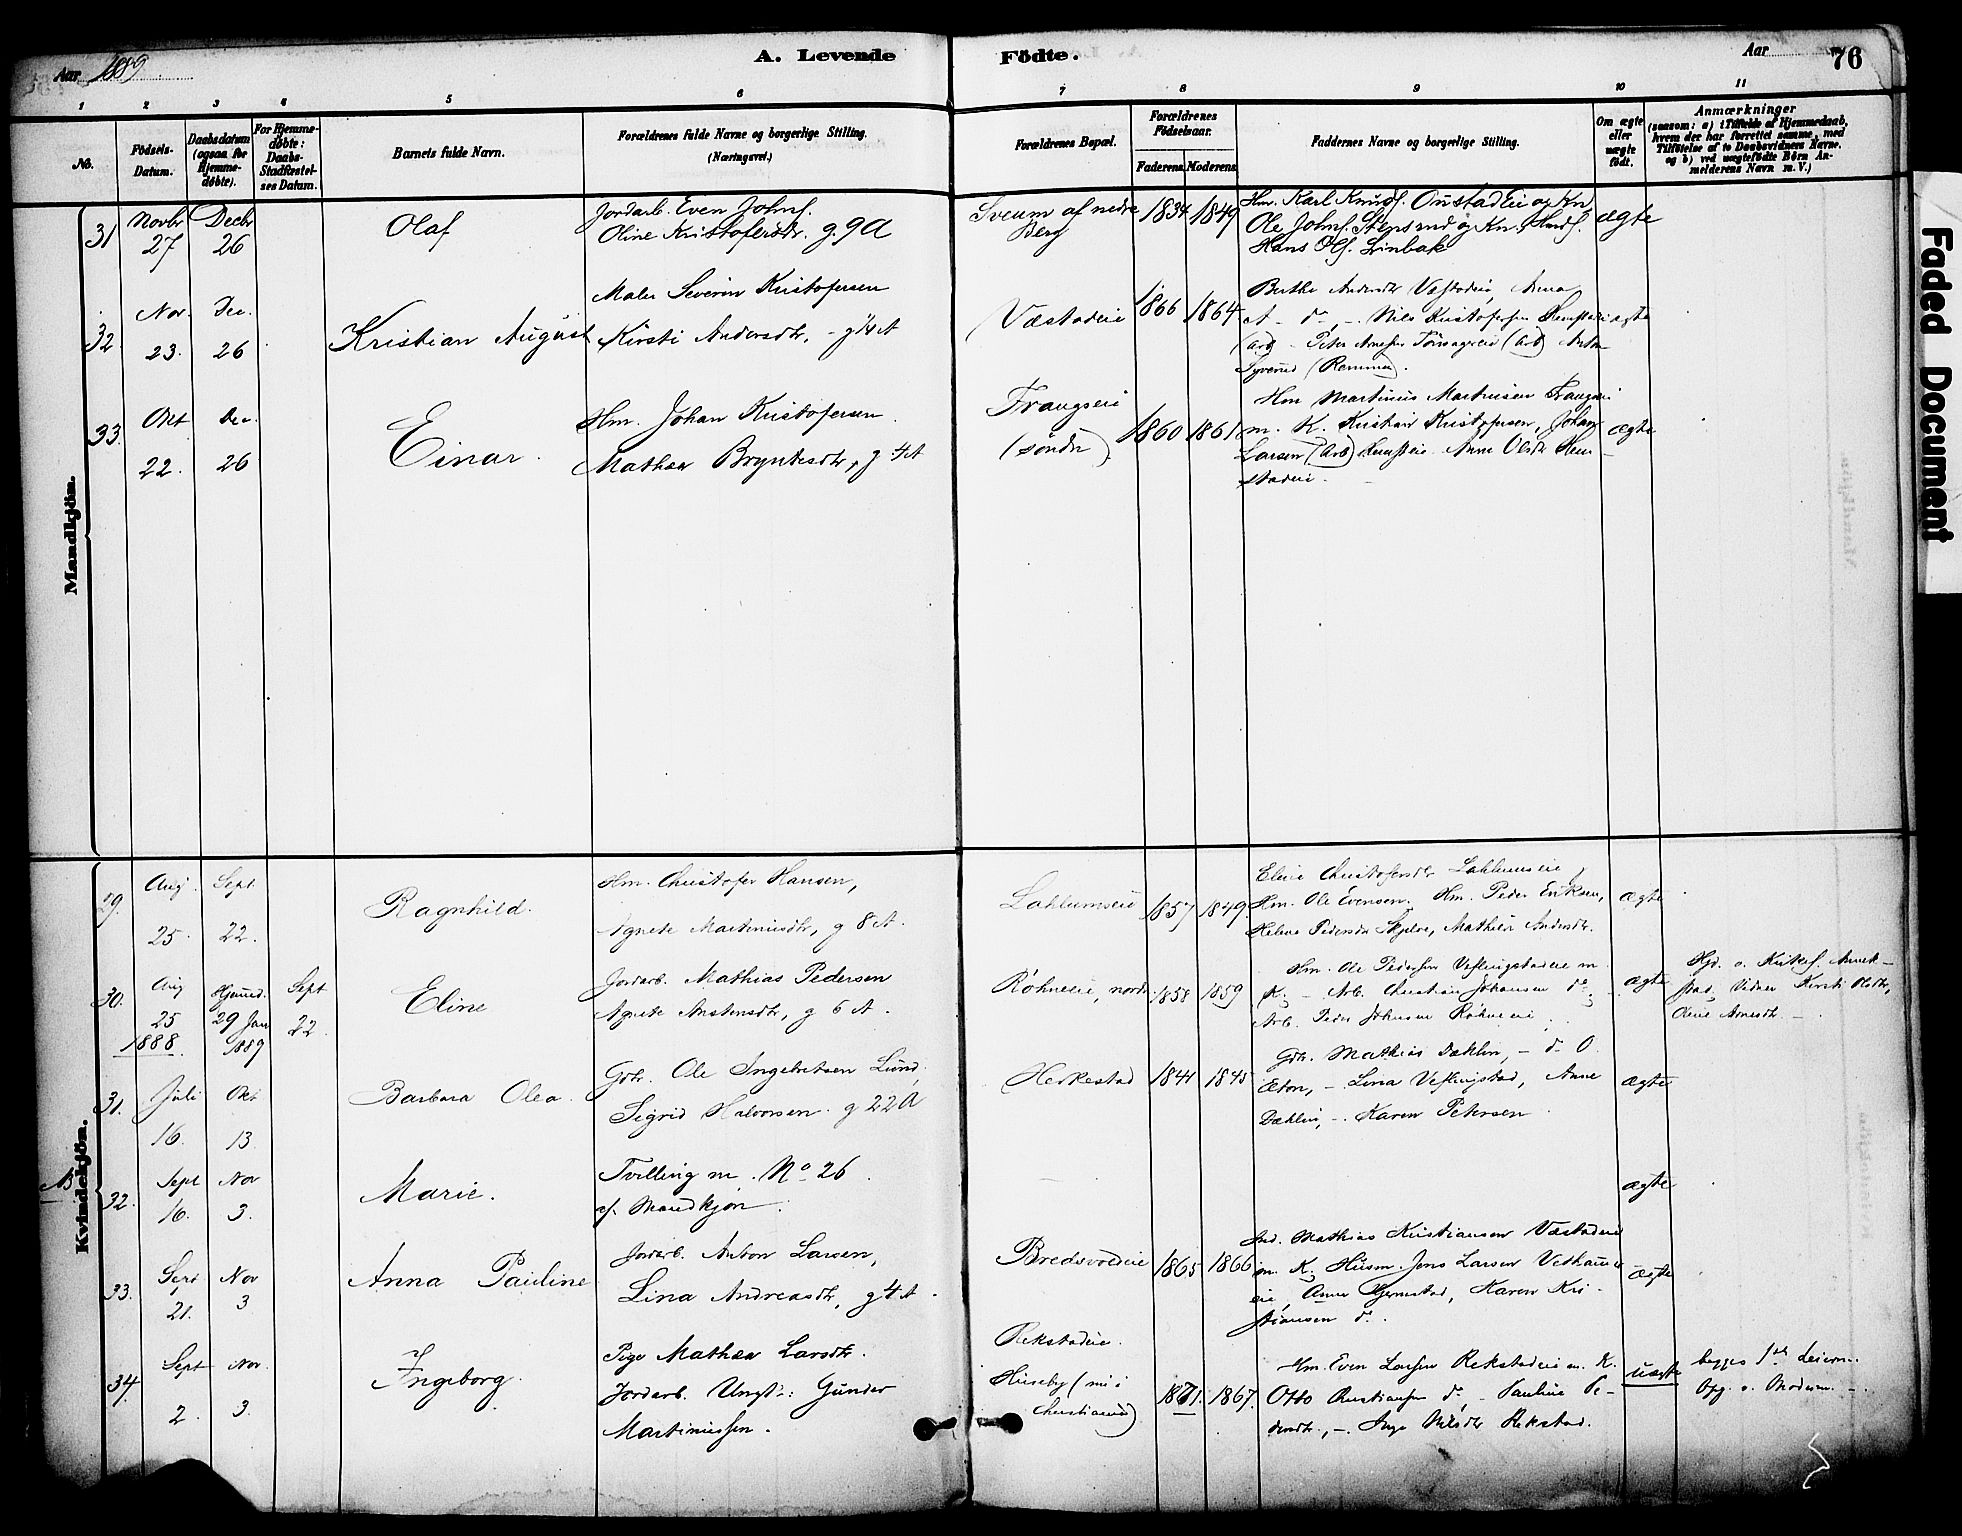 Aar 1889
A. Levende
Födte.
Aar 76
1 2 3 4 5 6 7 8 9 10 11
No.
Födsels-Datum.
Daabsdatum (ogsaa for Hjemme-døbte).
For Hjemme-døbte: Daabs-Stadfæstel-ses Datum.
Barnets fulde Navn.
Forældrenes fulde Navne og borgerlige Stilling.
(Næringsvei.)
Forældrenes Bopæl.
Forældrenes Födselsaar.
Faderens. Moderens.
Faddernes Navne og borgerlige Stilling.
Om ægte eller uægte født.
Anmærkninger
(saasom: a) i Tilfælde af Hjemmedaab, hvem der har forrettet samme, med Tilföielse af to Daabsvidners Navne, og b) ved uægtefødte Börn An-melderens Navn m. V.)
Mandkjön.
31 Novbr 27 Decbr 26
Olaf
Jordarb. Even Johns.
Oline Kristofersdtr. g. 9 A
Sveum af nedre
Berg
1834 1849
Hm. Karl Knuds. Onstadeie og Kn
Ole Johns. Stensrud og Kn.
Hans Ols. Linbak
ægte
32. Nov. 23. Dec. 26
Kristian August
Maler Severin Kristofersen
Kirsti Andersdtr, - g 1/4 A
Væstadeie
1866 1864
Berthe Andersdtr Væstadeie, Anna
A - do, - Nils Kristofersen
(arb) - Peter Arnesen (arb) Anton
Syverud (Remmen).
ægte
33. Okt 22. Dec. 26
Einar.
Hm. Johan Kristofersen
Mathea Bryntesdtr, g 4 A
Frangseie
(søndr)
1860 1861
Hm Martinius Martinsen Frangseie
m. K. Kristian Kristofersen, Johan
Larsen (Arb) Anne Olsdtr Hem-
stadeie.
ægte
Kvindekjön.
29. Aug. 25. Sept. 22.
Ragnhild.
Hm. Christofer Hansen,
Agnete Martiniusdtr, g 8 A.
Lahlumseie
1857 1849.
Eline Christofersdtr Lahlumseie,
Hm. Ole Evensen. Hm. Peder Eriksen,
Helene Pedersdtr Skjelve, Mathea Andersdtr.
ægte
30. Aug 25 1888. Hjemmed. 29 Jan 1889 Sept 22.
Eline
Jordarb. Mathias Pedersen
Agnete Anstensdtr, g 6 A.
Røhneeie, nordr.
1858 1859
Hm. Ole Pedersen Veflingstadeie m.
K. - Arb. Christian Johansen do
Arb. Peder Johnsen Røhneeie
ægte
Hjd. v. Kristof.
stad, Vidner Kirsti Olsdtr,
Oline Arnesdtr. -
31. Juli 16. Okt 13.
Barbara Olea.
Gbr. Ole Ingebretsen Lund,
Sigrid Halvorsen. g 22 A
Herkestad
1844 1845
Gbr. Mathias Dæhlin, - do O.
Eton, - Lina Veflingstad, Anne
Dæhlin, -. Karen Petersen
ægte
NB 32. Sept 16. Nov 3.
Marie.
Tvilling m. No 26
af Mandkjøn.
ægte
33. Sept 21. Nov 3
Anna Pauline
Jordarb. Anton Larsen,
Lina Andreasdtr, g 4 A.
Bredsvoldeie
1865 1866
Ind. Mathias Kristiansen Væstadeie
m. K. Husm. Jens Larsen Vethamer
eie, Anne Gjernestad, Karen Kri-
stiansen do.
ægte
34. Sept 2. Nov. 3.
Ingeborg.
Pige Mathea Larsdtr.
Jordarb. Ungk.: Gunder
Martiniussen.
Rekstadeie.
Huseby (nu i
Christiania)
1871. 1867.
Hm. Even Larsen Rekstadeie m. K.
Otto Christiansen do, - Pauline Pe-
dersdtr., -. Inge Nilsdtr Rekstad.
uægte
begges 1ste Leierm.
Opg. v. Moderen. -
Faded Document